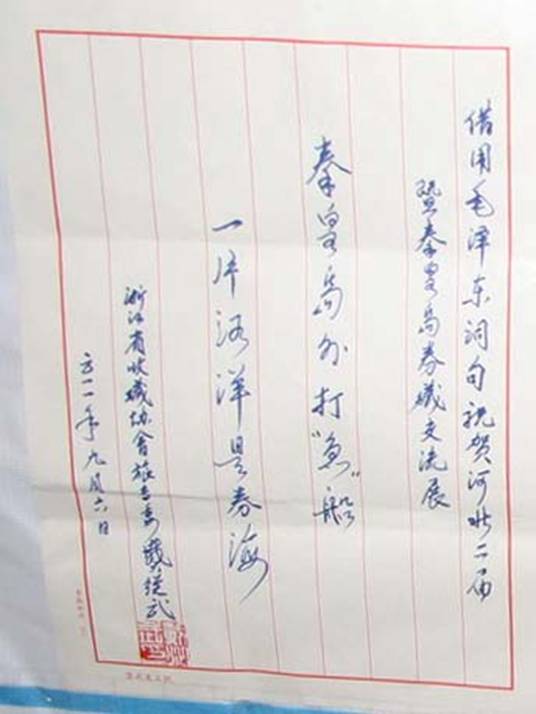 借用毛泽东词句祝贺河北二届
暨秦皇岛券藏交流展
秦皇岛外打“鱼”船
一片汪洋是券海
浙江省收藏协会旅专委
二〇一一年九月六日